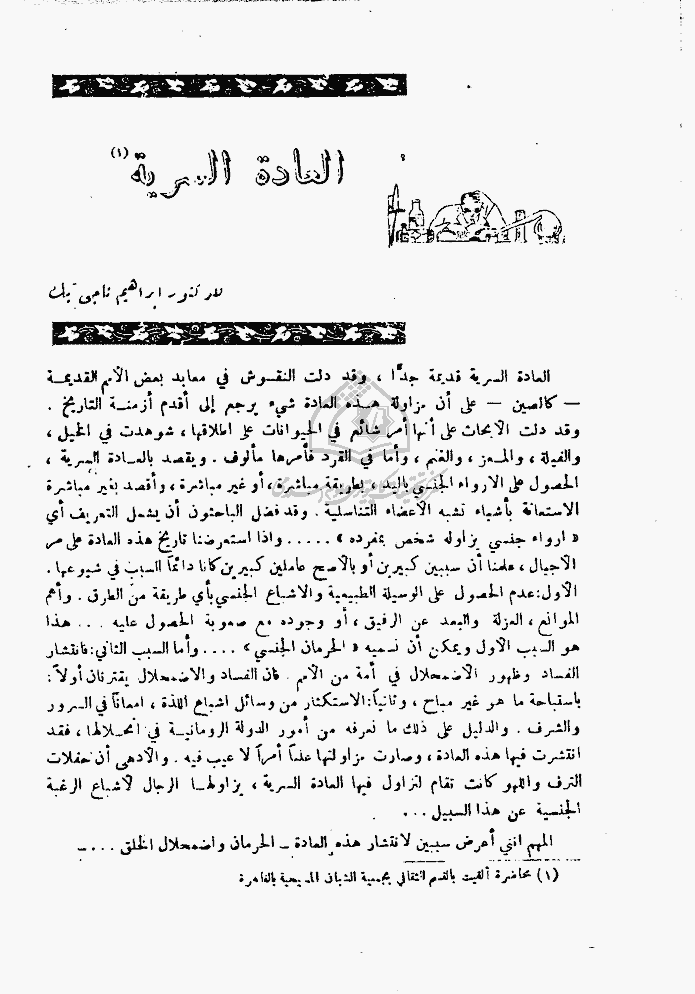 العادة السرية (١)
للدكتور إبراهيم ناجى بك
العادة السرية قديمة جداً ، وقد دلت النقوش في معابد بعض الأمم القديمة
— كالصين — على أن مزاولة هذه العادة شيء يرجع إلى أقدم أزمنة التاريخ .
وقد دلت الأبحاث على أنها أمر شائع في الحيوانات على اطلاقها ، شوهدت في الخيل ،
والفيلة ، والمعز ، والغنم ، وأما في القرد فأمرها مألوف . ويقصد بالعادة السرية ،
الحصول على الارواء الجنسي باليد ، بطريقة مباشرة ، أو غير مباشرة ، وأقصد بغير مباشرة
الاستعانة بأشياء تشبه الأعضاء التناسلية . وقد فضل الباحثون أن يشمل التعريف أي
« ارواء جنسي يزاوله شخص بمفرده » ..... واذا استعرضنا تاريخ هذه العادة على مر
الأجيال ، علمنا أن سببين كبيرين أو بالأصح عاملين كبيرين كانا دائماً السبب في شيوعها .
الأول : عدم الحصول على الوسيلة الطبيعية والاشباع الجنسي بأي طريقة من الطرق . وأهم
الموانع ، العزلة والبعد عن الرفيق ، أو وجوده مع صعوبة الحصول عليه ... هذا
هو السبب الأول ويمكن أن نسميه « الحرمان الجنسي » .... وأما السبب الثاني : فانتشار
الفساد وظهور الاضمحلال في أمة من الأمم . فان الفساد والاضمحلال يقترنان أولاً :
باستباحة ما هو غير مباح ، وثانياً : الاستكثار من وسائل اشباع اللذة ، امعاناً في السرور
والشرف . والدليل على ذلك ما نعرفه من أمور الدولة الرومانية في انحلالها ، فقد
انتشرت فيها هذه العادة ، وصارت مزاولتها علماً أمراً لا عيب فيه . والأدهى أن حفلات
الترف واللهو كانت تقام لتزاول فيها العادة السرية ، يزاولها الرجال لاشباع الرغبة
الجنسية عن هذا السبيل ...
المهم انني أعرض سببين لانتشار هذه العادة — الحرمان واضمحلال الخلق ... —
(١) محاضرة ألقيت بالقسم الثقافي بجمعية الشبان المسيحية بالقاهرة